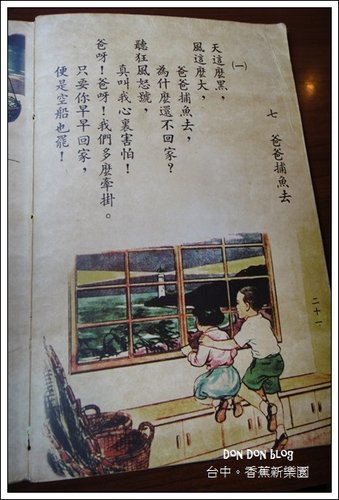 七 爸爸捕魚去
(一)
天這麼黑，
風這麼大，
爸爸捕魚去，
為什麼還不回家？
聽狂風怒號，
真叫我心裏害怕！
爸呀！爸呀！我們多麼牽掛。
只要你早早回家，
便是空船也罷！
二十一
DON DON BLOG
台中。香蕉新樂園